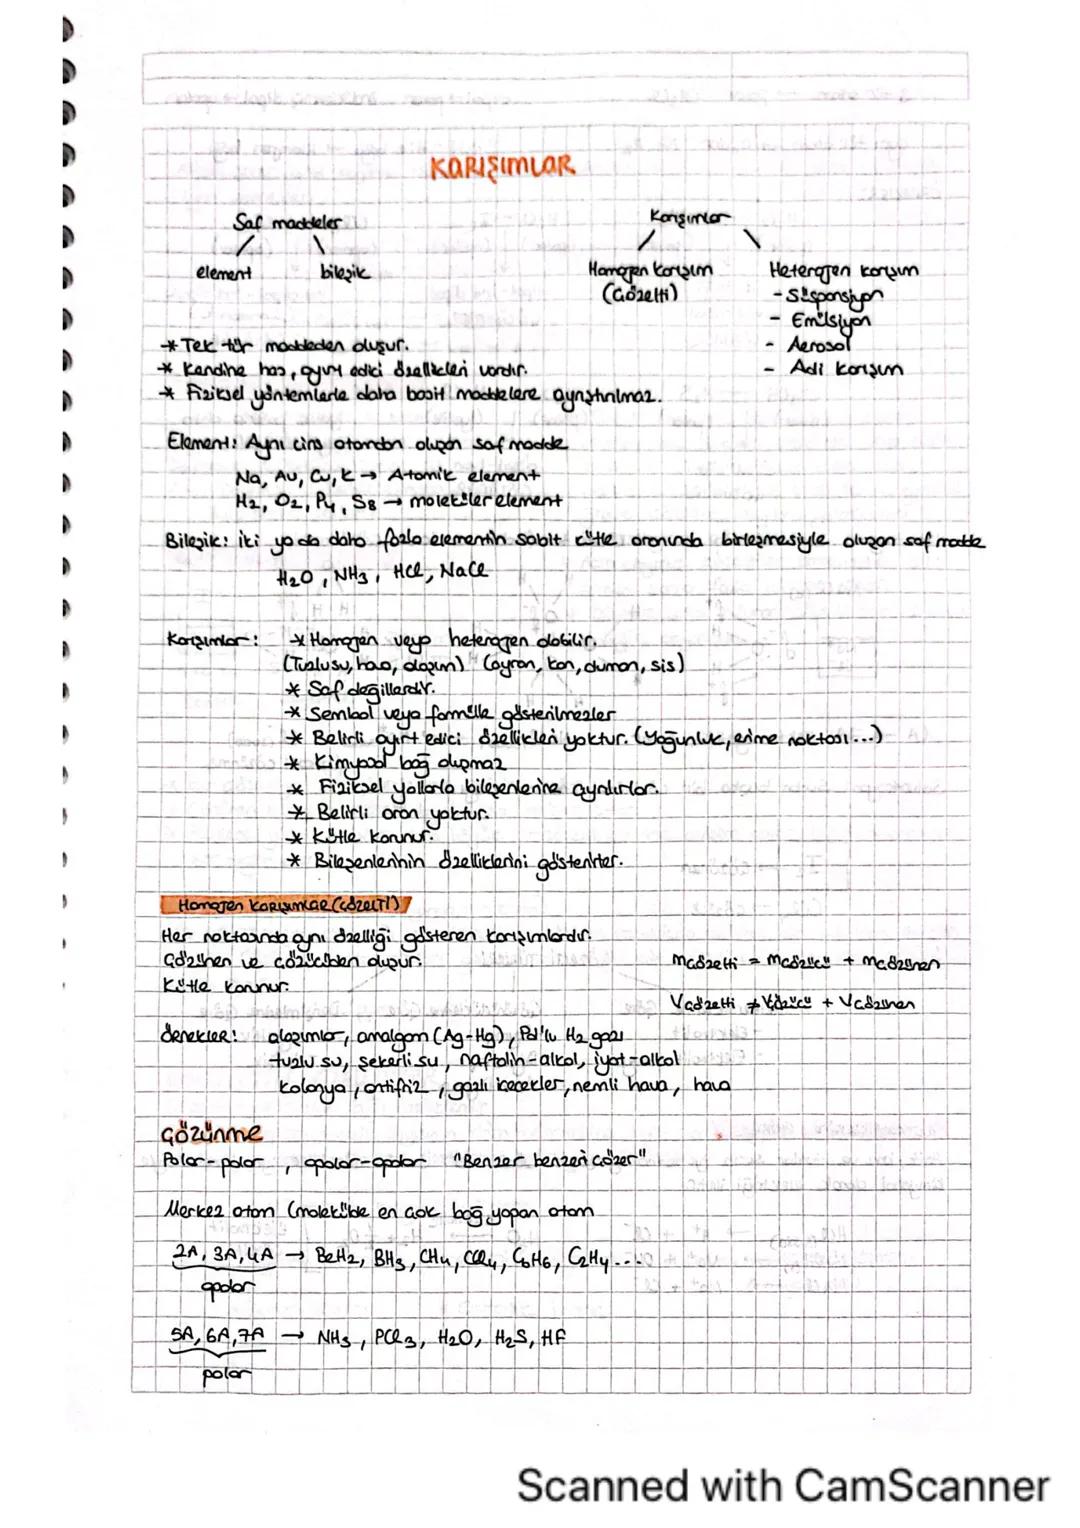 KARIŞIMLAR
Saf maddeler
element bileşik
Karışımlar
Homojen karışım
(Çözelti)
Heterojen karışım
- Süspansiyon
- Emülsiyon
- Aerosol
- Adi karışım
* Tek tür maddeden oluşur.
* Kendine has, ayırt edici özellikleri vardır.
* Fiziksel yöntemlerle daha basit maddelere ayrıştırılmaz.
Element: Aynı cins atomdan oluşan saf madde
Na, Au, Cu, K → Atomik element
H2, O2, P4, S8 → moleküler element
Bileşik: iki ya da daha fazla elementin sabit kütle oranında birleşmesiyle oluşan saf madde
H2O, NH3, HCl, NaCl
Karışımlar: * Homojen veya heterojen olabilir.
(Tuzlusu, hava, alaşım) (ayran, kan, duman, sis)
* Saf değillerdir.
* Sembol veya formülle gösterilmezler
* Belirli ayırt edici özellikleri yoktur. (Yoğunluk, erime noktası...)
* Kimyasal bağ oluşmaz
* Fiziksel yollarla bileşenlerine ayrılırlar.
* Belirli oran yoktur.
* Kütle korunur.
* Bileşenlerinin özelliklerini gösterirler.
Homojen Karışımlar (Çözelti)
Her noktasında aynı özelliği gösteren karışımlardır.
Çözünen ve çözücüden oluşur.
Kütle korunur.
mçözelti = mçözücü + mçözünen
Vçözelti ≠ Vçözücü + Vçözünen
Örnekler: alaşımlar, amalgam (Ag-Hg), Pd'lu H2 gazı
tuzlu su, şekerli su, naftalin-alkol, iyot-alkol
kolonya, antifriz, gazlı içecekler, nemli hava, hava
Çözünme
Polar-polar, apolar-apolar "Benzer benzeri çözer"
Merkez atom (molekülde en çok bağ yapan atom
2A, 3A, 4A → BeH2, BH3, CH4, CCl4, C6H6, C2H4...
apolar
5A, 6A, 7A → NH3, PCl3, H2O, H2S, HF
polar
Scanned with CamScanner